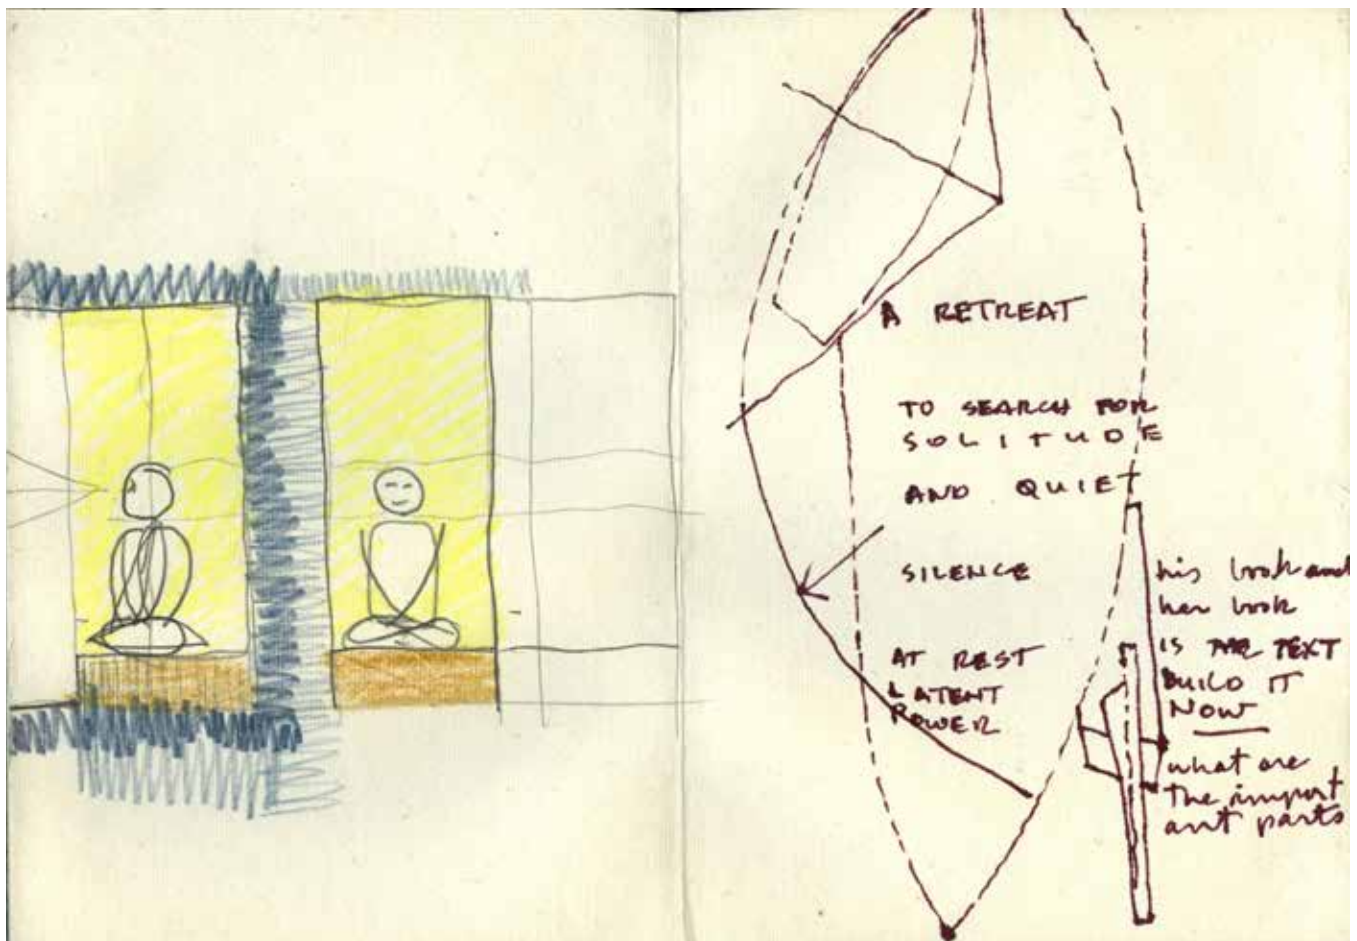 A RETREAT
TO SEARCH FOR
SOLITUDE
AND QUIET
SILENCE
AT REST
LATENT
POWER
his book and
her book
IS THE TEXT
BUILD IT
NOW
what are
the import
ant parts